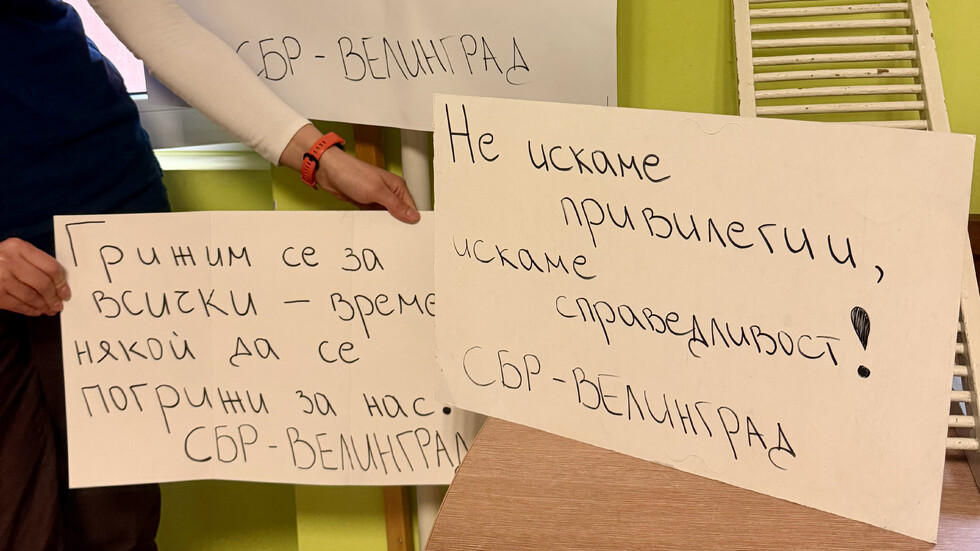 СБР-ВЕЛИНГРАД
Грижим се за
всички - време
някой да се
погрижи за нас.
СБР-ВЕЛИНГРАД
Не искаме
привилегии,
искаме
справедливост!
СБР-ВЕЛИНГРАД